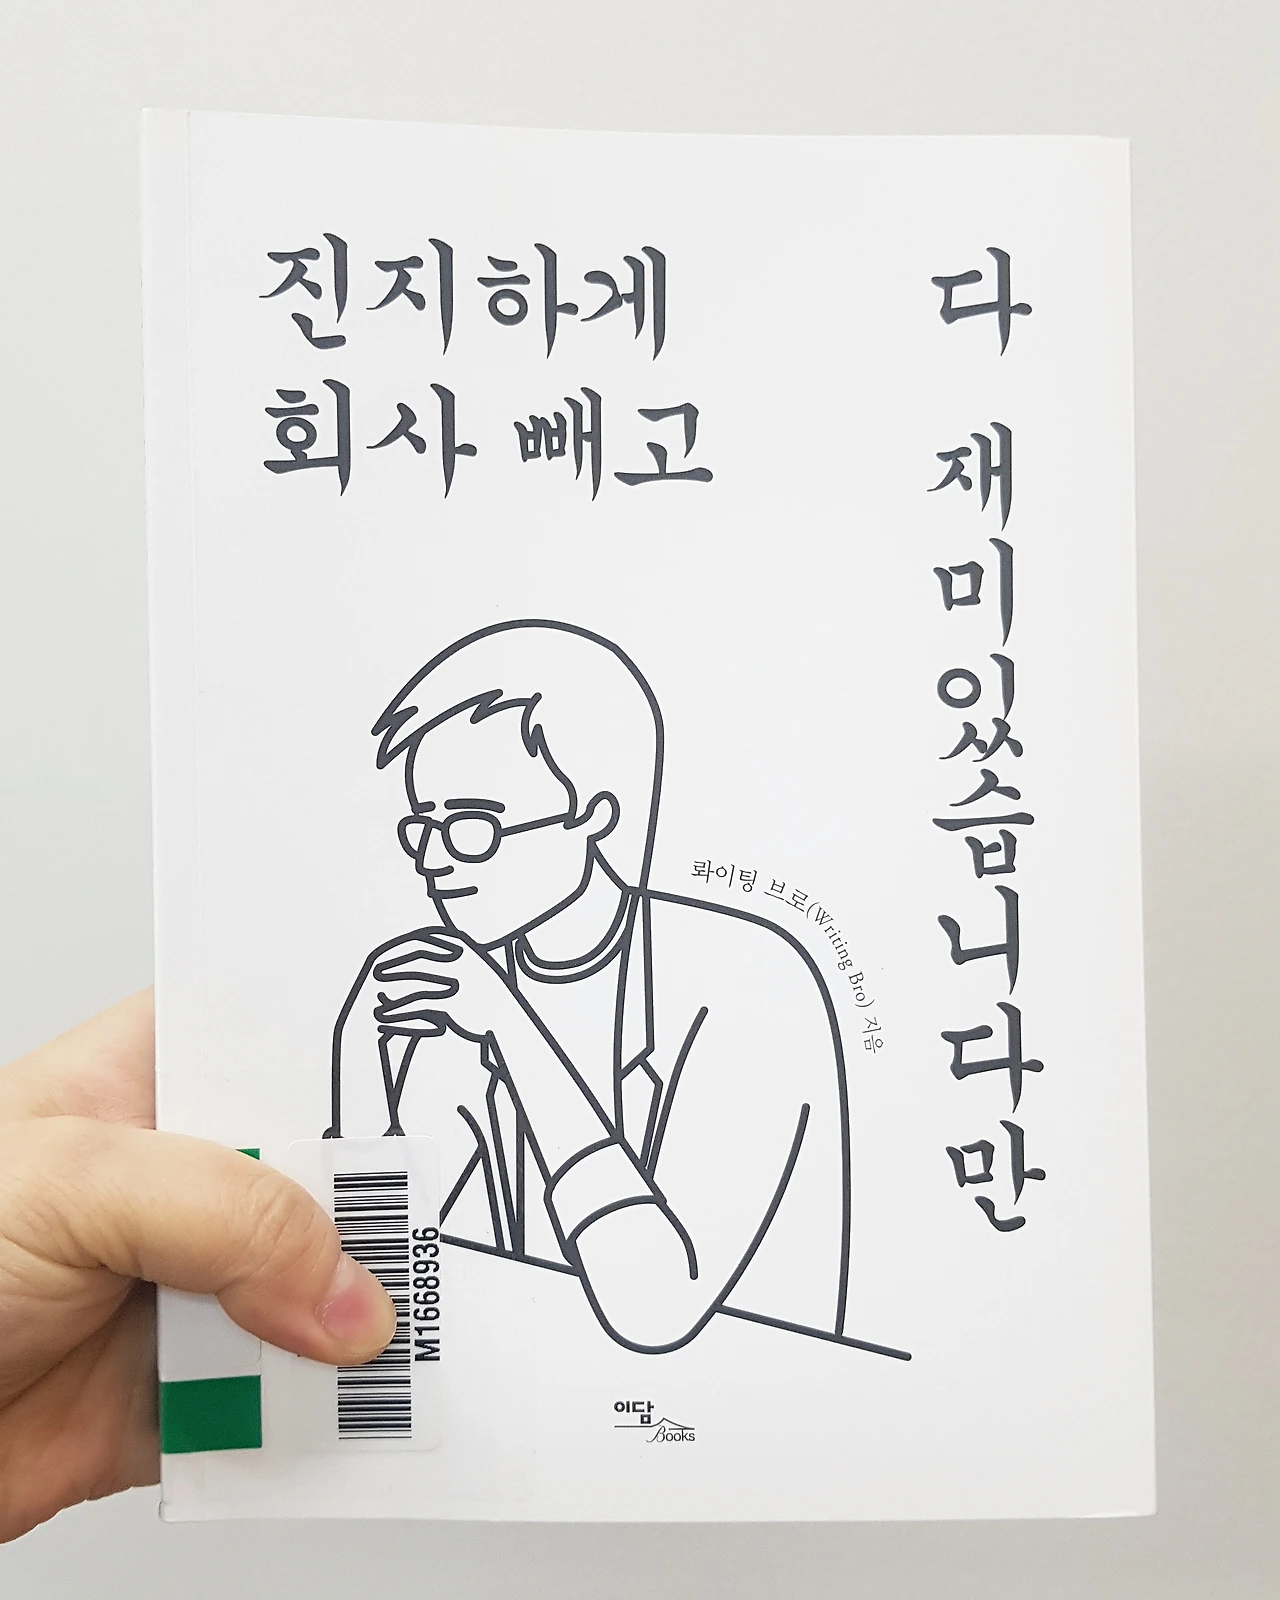 진지하게
회사 빼고
다 재미있습니다만
롸이팅 브로(Writing Bro) 지음
M1668936
이담
Books